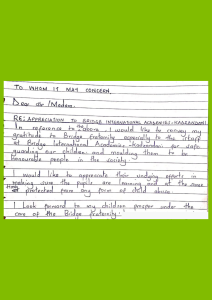 TO WHOM IT MAY CONCERN.
Dear Sir/Madam.
RE: APPRECIATION TO BRIDGE INTERNATIONAL ACADEMIES-KADZANDANI
In reference to the above, I would like to convey my
gratitude to Bridge fraternity especially to the staff
at Bridge International Academies - Kadzandani for safe
guarding our children and moulding them to be
honourable people in the society.
I would like to appreciate their undying efforts in
making sure the pupils are learning and at the same
time protected from any form of child abuse.
I look forward to my children prosper under the
care of the Bridge fraternity.